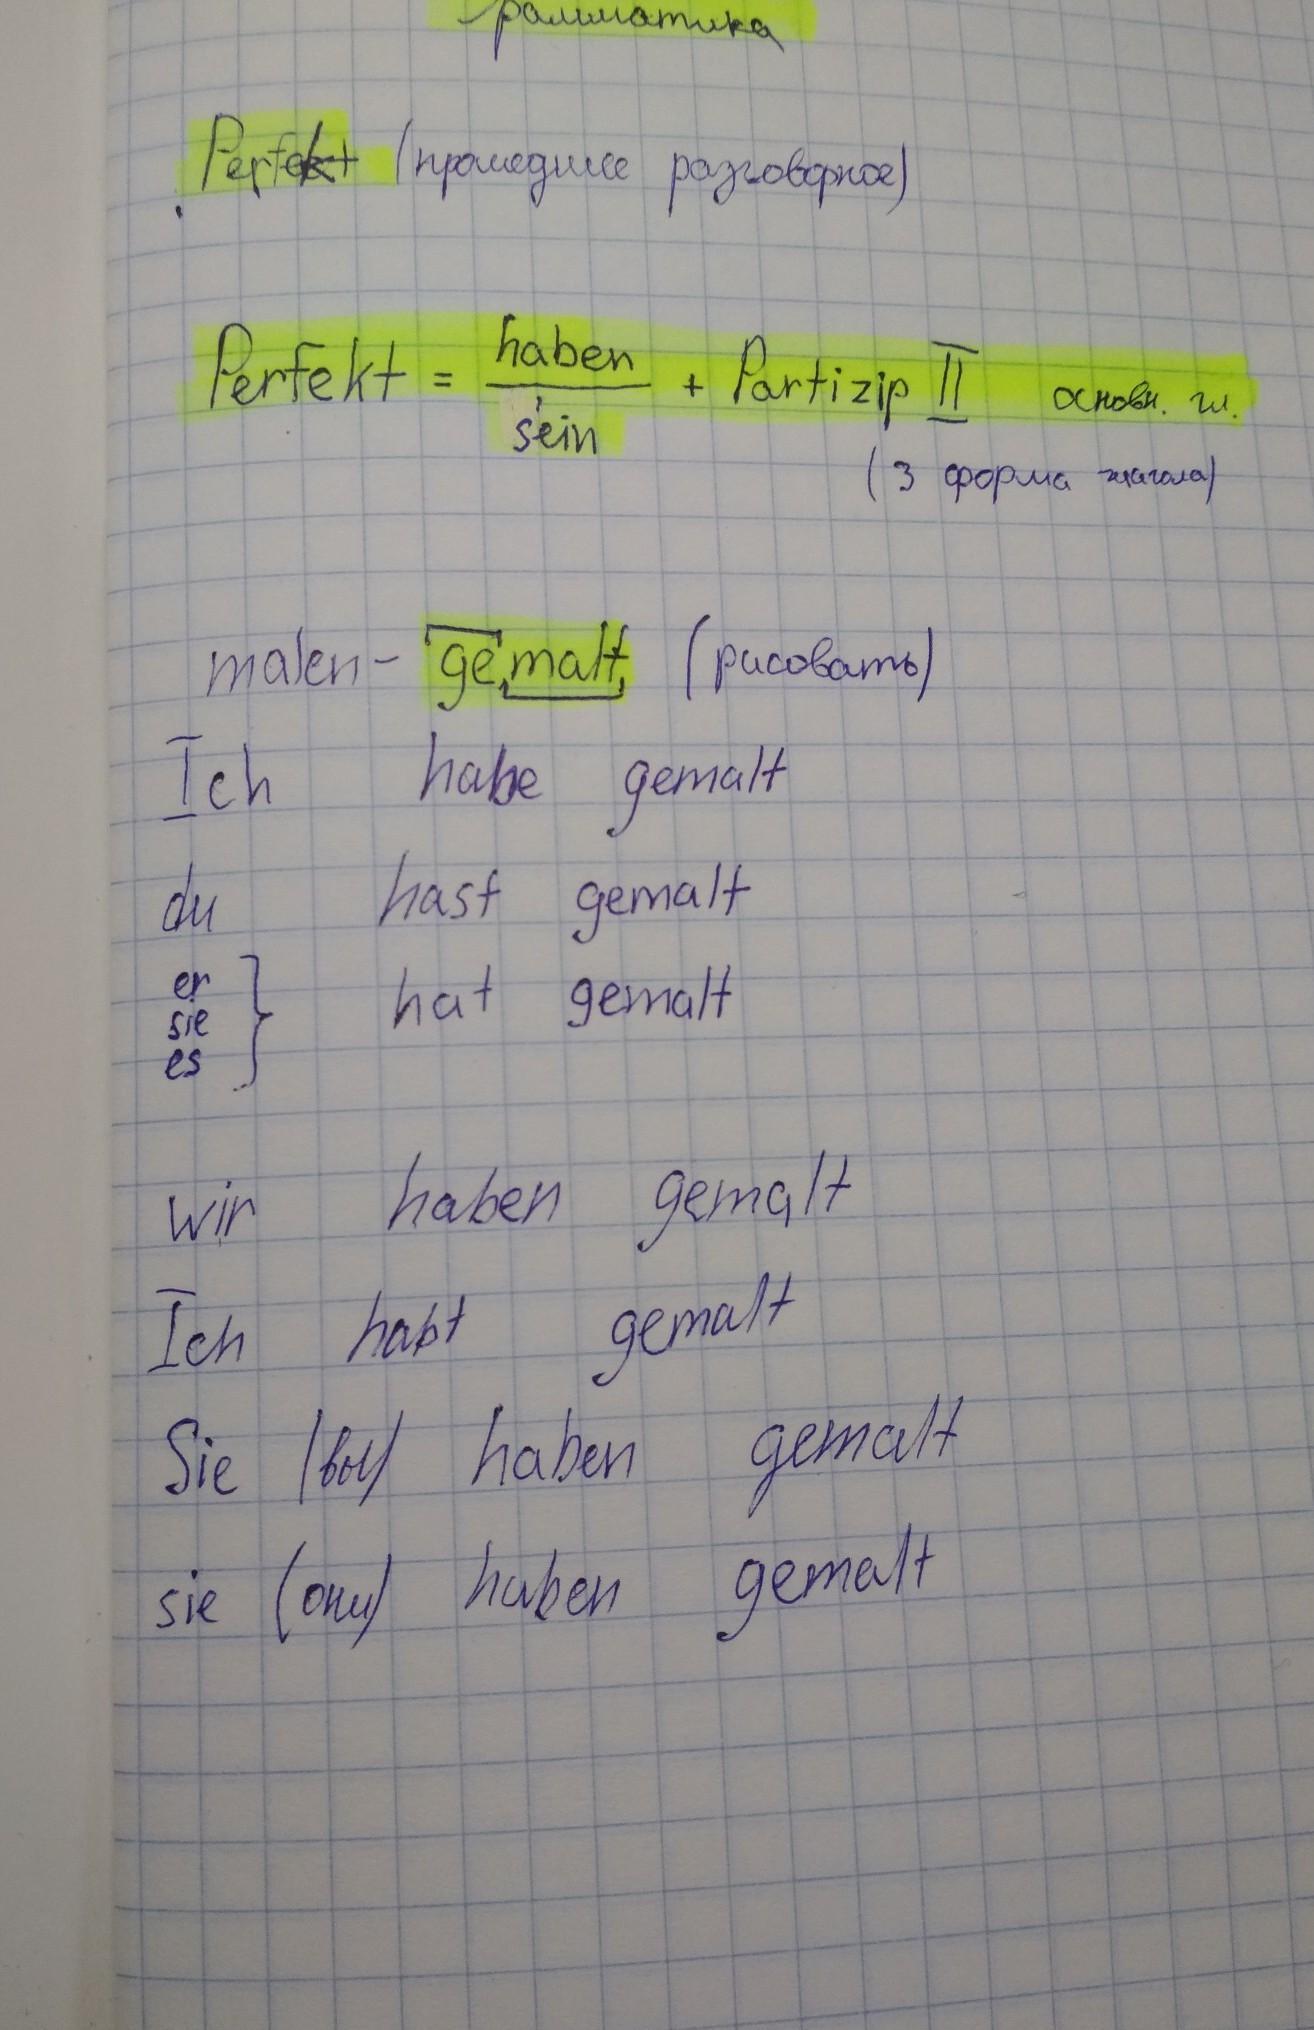 Грамматика
Perfekt (прошедшее разговорное)
Perfekt = haben / sein + Partizip II основн. гл.
(3 форма глагола)
malen - gemalt (рисовать)
Ich habe gemalt
du hast gemalt
er
sie
es } hat gemalt
wir haben gemalt
Ich habt gemalt
Sie (вы) haben gemalt
sie (они) haben gemalt